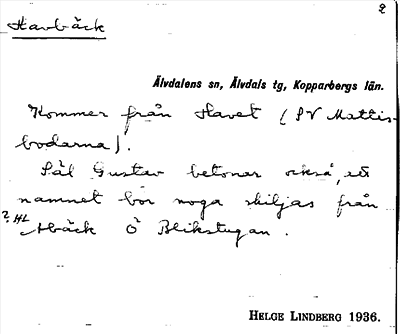 2
Havbäck
Älvdalens sn, Älvdals tg, Kopparbergs län.
Kommer från Havet (SV Mattis-
bodarna).
Pål Gustav betonar också, att
namnet bör noga skiljas från
? HL
Åbäck Ö Blikstugan.
HELGE LINDBERG 1936.